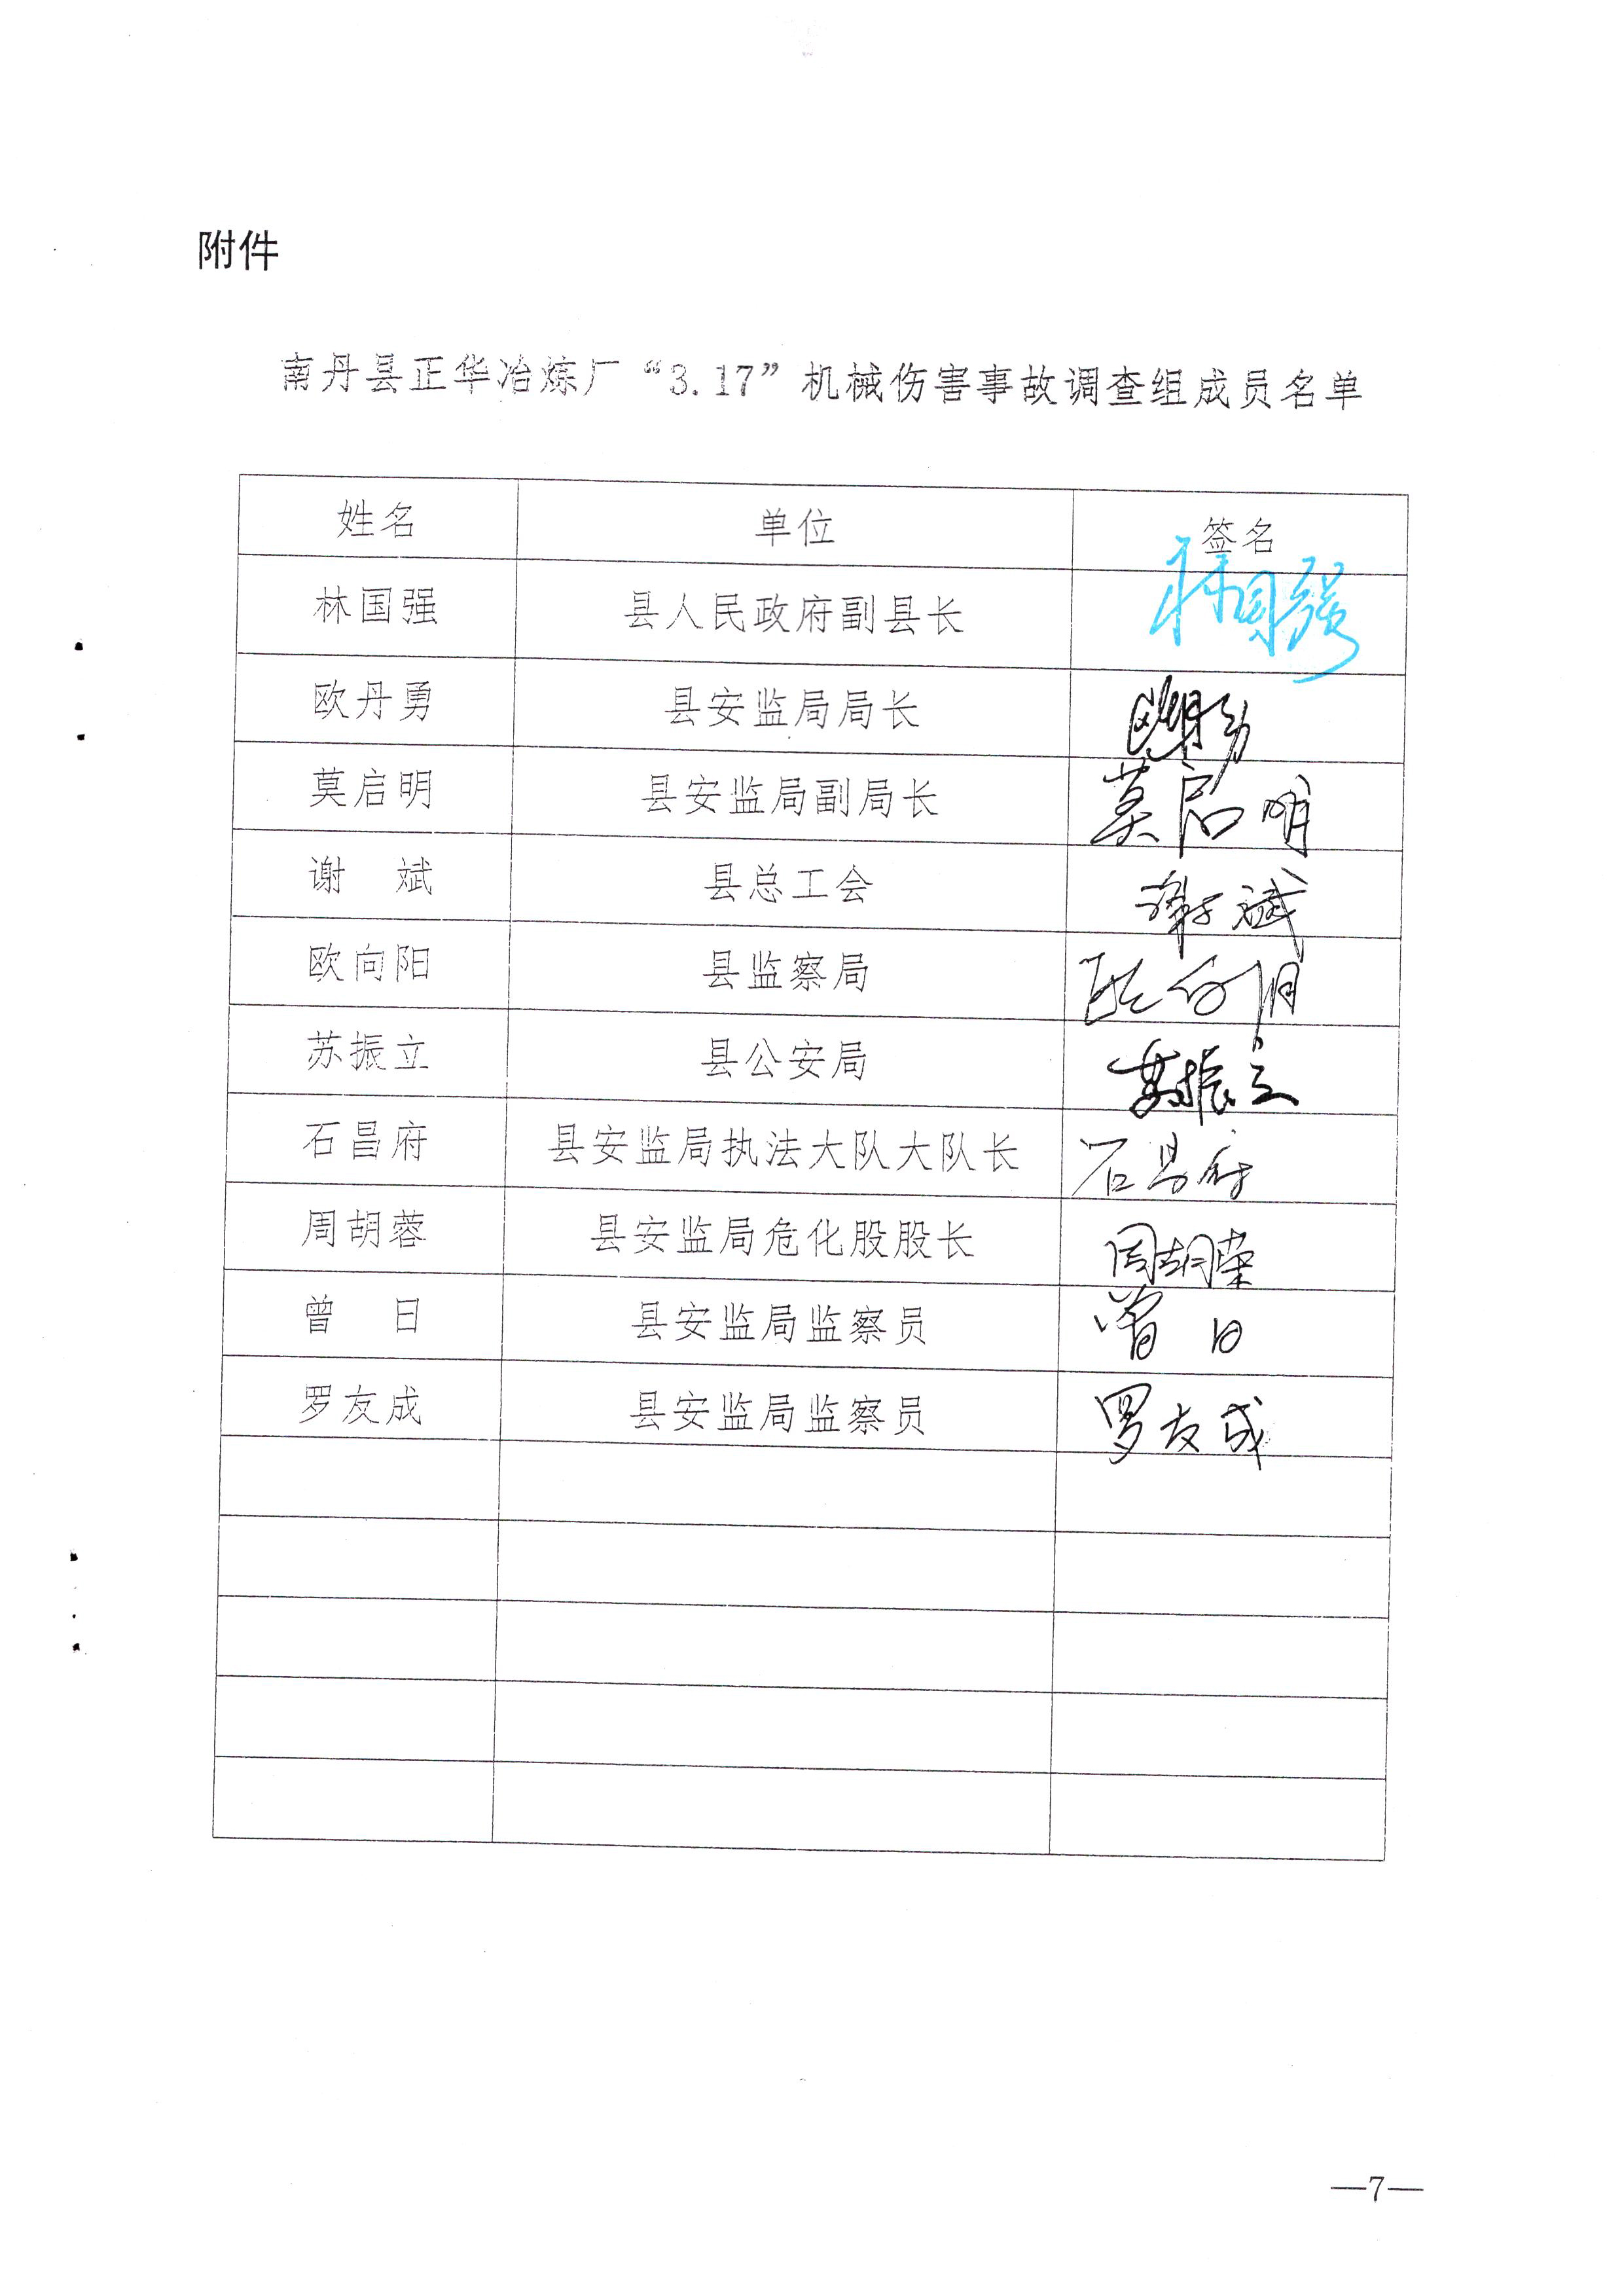 附件
南丹县正华冶炼厂“3.17”机械伤害事故调查组成员名单
姓名 单位 签名
林国强 县人民政府副县长 林国强
欧丹勇 县安监局局长 欧丹勇
莫启明 县安监局副局长 莫启明
谢 斌 县总工会 谢斌
欧向阳 县监察局 欧向阳
苏振立 县公安局 苏振立
石昌府 县安监局执法大队大队长 石昌府
周胡蓉 县安监局危化股股长 周胡荣
曾 日 县安监局监察员 曾日
罗友成 县安监局监察员 罗友成
—7—